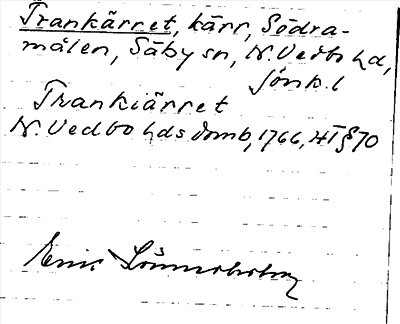 Trankärret, kärr, Södra-
målen, Säby sn, N. Vedbo hd,
Jönk. l
Trankiärret
N. Vedbo hds domb, 1766, HT § 70